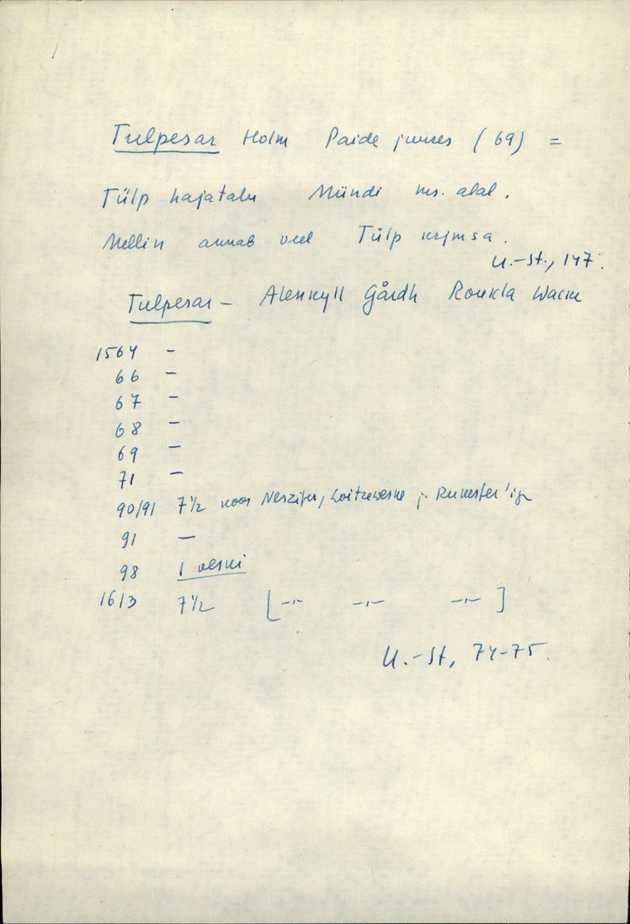 Tulpesar Holm Paide juures (69) =
Tülp hajatalu Mündi ms. alal.
Mellin annab veel Tülp
U.-St., 147.
Tulpesar – Alenkyll Gårdh Roukla Wacke
1564 –
66 –
67 –
68 –
69 –
71 –
90/91 7½ koos j.
91 –
98 1 veski
1613 7½ [–"– –"– –"–]
U.-St, 74-75.